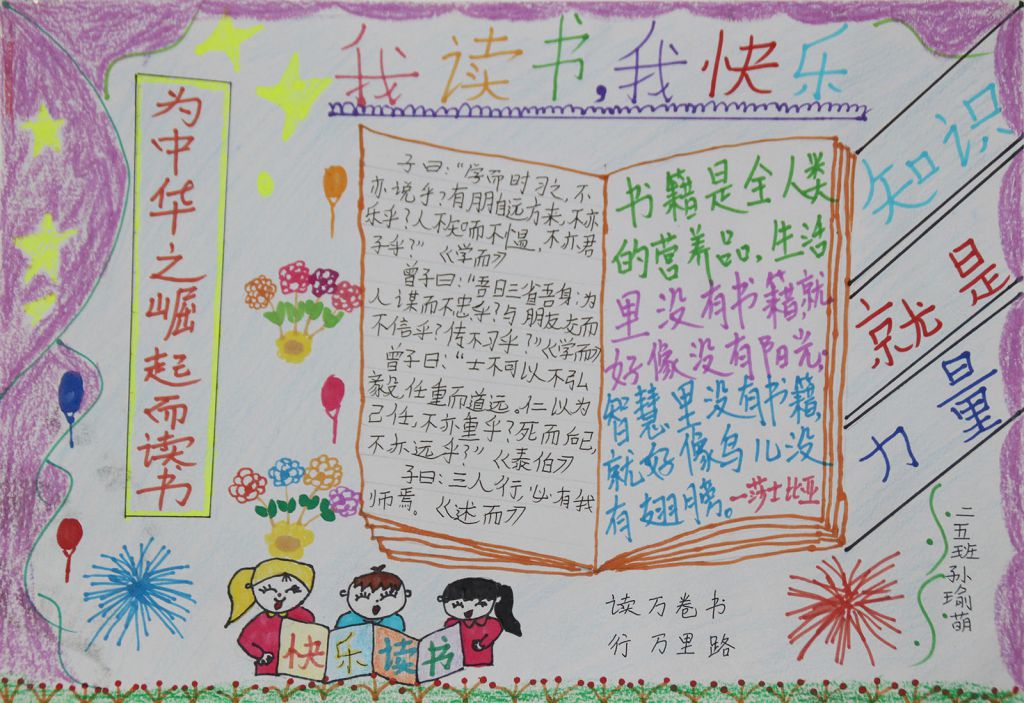 我读书,我快乐
为中华之崛起而读书
子曰:“学而时习之,不
亦说乎?有朋自远方来,不亦
乐乎?人不知而不愠,不亦君
子乎?”《学而》
曾子曰:“吾日三省吾身:为
人谋而不忠乎?与朋友交而
不信乎?传不习乎?”《学而》
曾子曰:“士不可以不弘
毅,任重而道远。仁以为
己任,不亦重乎?死而后已,
不亦远乎?”《泰伯》
子曰:三人行,必有我
师焉。《述而》
书籍是全人类
的营养品,生活
里没有书籍,就
好像没有阳光;
智慧里没有书籍,
就好像鸟儿没
有翅膀。—莎士比亚
知识
就是
力量
快乐读书
读万卷书
行万里路
二五班孙瑜萌